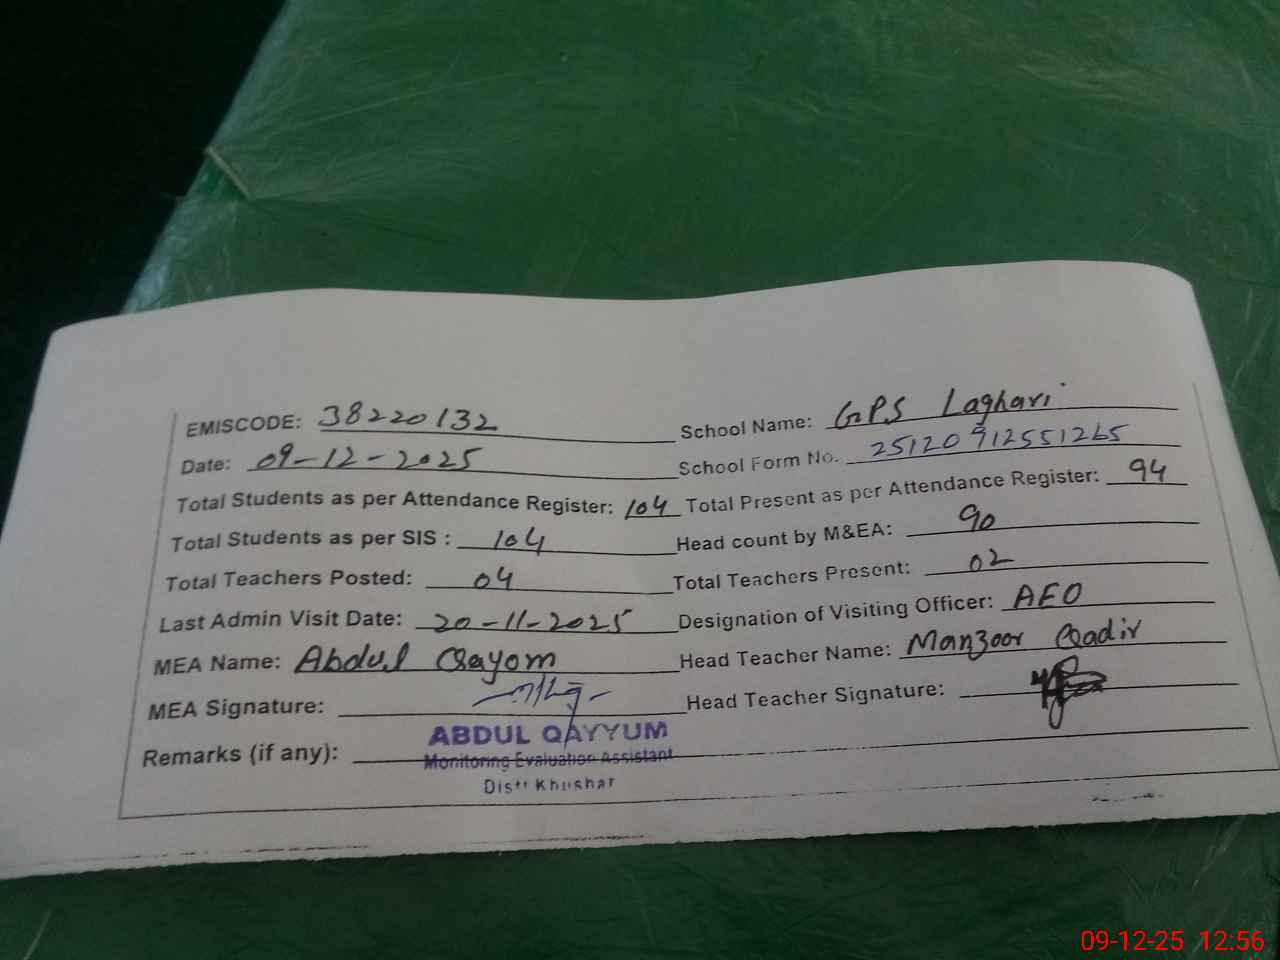 EMISCODE: 38220132 School Name: GPS Laghari
Date: 09-12-2025 School Form No. 25120912551265
Total Students as per Attendance Register: 104 Total Present as per Attendance Register: 94
Total Students as per SIS : 104 Head count by M&EA: 90
Total Teachers Posted: 04 Total Teachers Present: 02
Last Admin Visit Date: 20-11-2025 Designation of Visiting Officer: AEO
MEA Name: Abdul Qayom Head Teacher Name: Manzoor Qadir
MEA Signature: Head Teacher Signature:
ABDUL QAYYUM
Remarks (if any):
Monitoring Evaluation Assistant
Distt Khushar
09-12-25 12:56